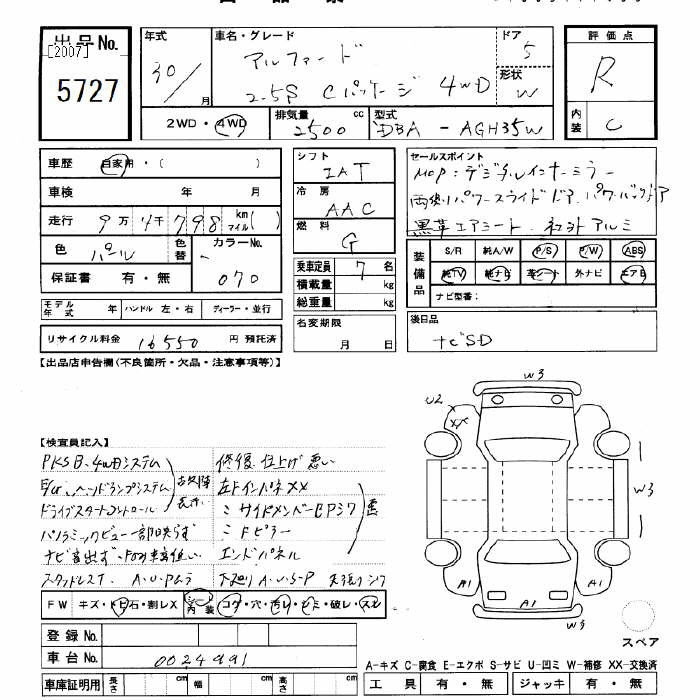 出品No.
[2007]
5727
年式
30/
月
車名・グレード
アルファード
2.5S Cパッケージ 4WD
ドア
5
形状
W
評価点
R
内装
C
2WD・4WD
排気量
cc
2500
型式
DBA-AGH35W
車歴 自家用・( )
車検 年 月
走行 9万4千798 km マイル( )
色 パール
色替
カラーNo.
070
保証書 有・無
モデル年式 年 ハンドル 左・右 ディーラー・並行
リサイクル料金 16550 円 預託済
シフト
IAT
冷房
AAC
燃料
G
乗車定員 7 名
積載量 kg
総重量 kg
名変期限
月 日
セールスポイント
MOP:デジタルインナーミラー
両側パワースライドドア パワーバックドア
黒革エアシート 社外アルミ
装備品
S/R 純A/W P/S P/W ABS
純TV 純ナビ 革シート 外ナビ エアB
ナビ型番:
後日品
ナビSD
【出品店申告欄(不良箇所・欠品・注意事項等)】
【検査員記入】
PKSB、4WDシステム
E/G、ヘッドランプシステム
ドライブスタートコントロール
パノラミックビュー一部映らず
ナビ音出ず
スタッドレスT. A・Uクムラ
修復 仕上げ悪い
左Fインパネ XX
〃 サイドメンバー
〃 Fピラー
エンドパネル
下廻り A・U・S・P
FW キズ・トビ石・割レX
内装 コゲ・穴・汚レ・シミ・破レ・スレ
登録No.
車台No. 0024991
車庫証明用 長さ cm 幅 cm 高さ cm
W3
U2
XX
W3
A1
A1
A1
W3
スペア
A-キズ C-腐食 E-エクボ S-サビ U-凹ミ W-補修 XX-交換済
工具 有・無 ジャッキ 有・無